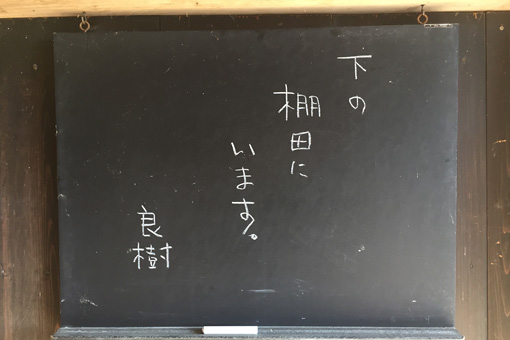 下の
棚田に
います。
良樹